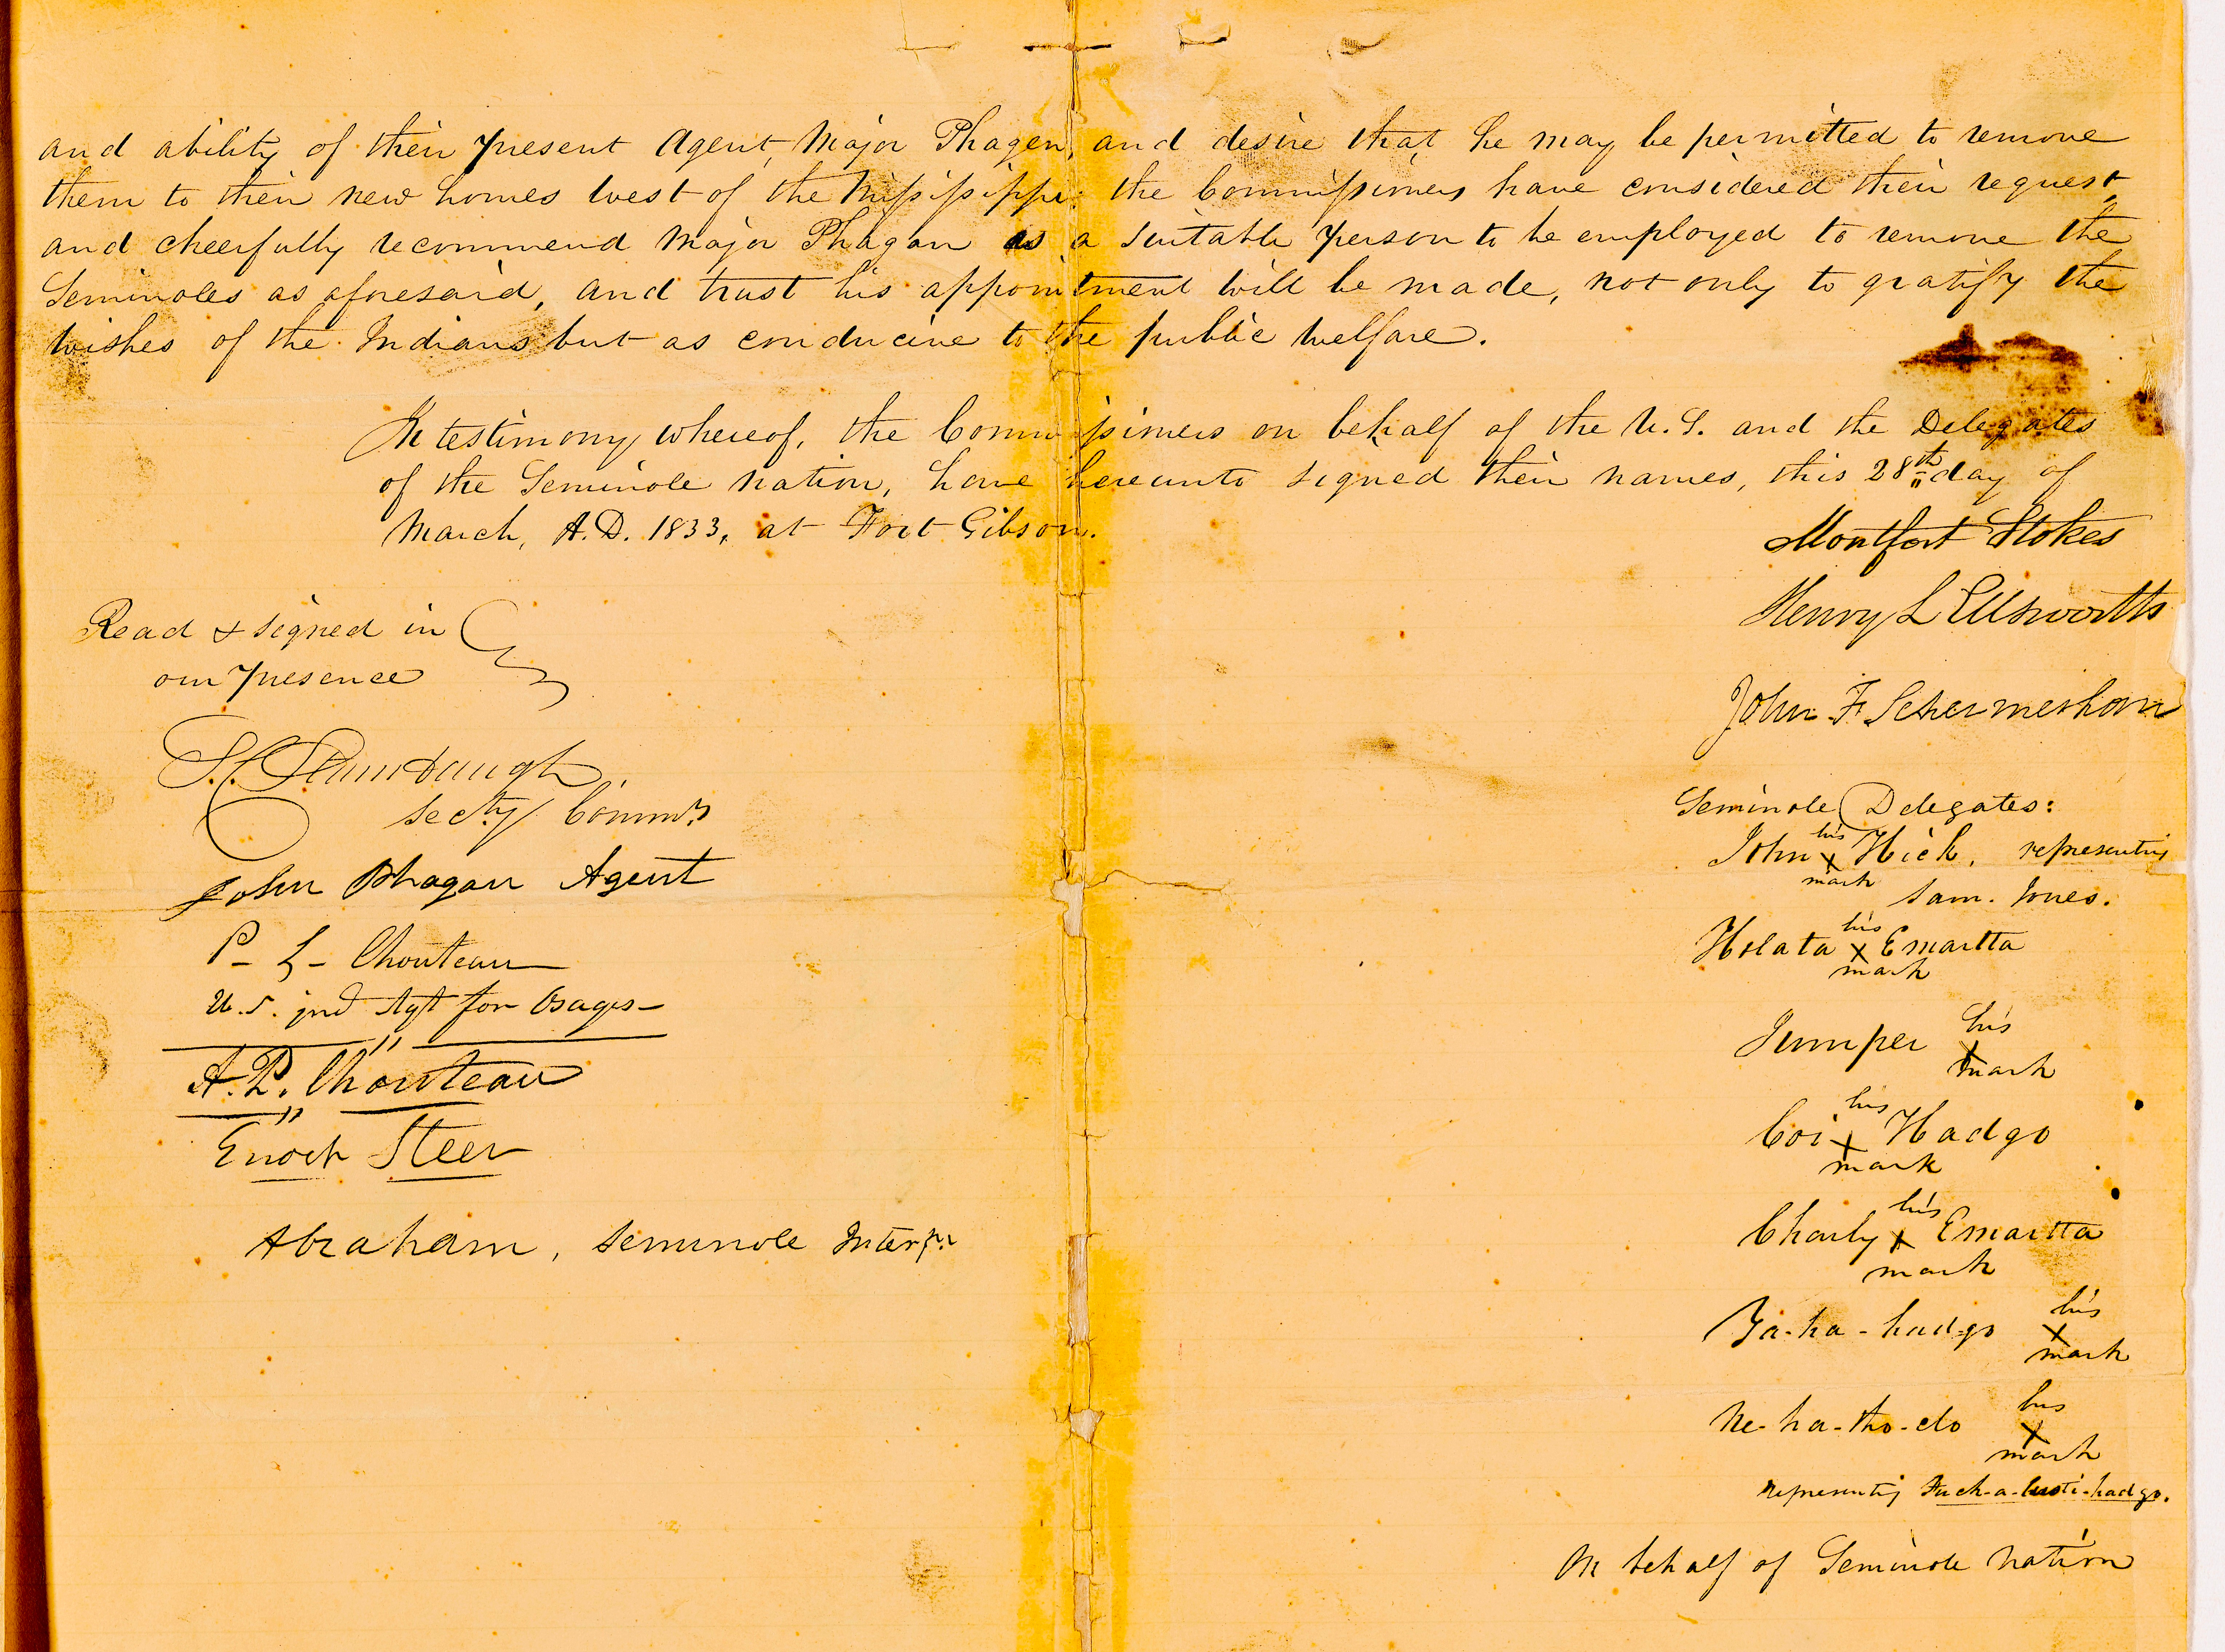 and ability of their present Agent, Major Phagen, and desire that he may be permitted to remove
them to their new homes west of the Mississippi; the Commissioners have considered their request,
and cheerfully recommend Major Phagan as a suitable person to be employed to remove the
Seminoles as aforesaid, and trust his appointment will be made, not only to gratify the
wishes of the Indians but as conducive to the public welfare.
In testimony whereof, the Commissioners on behalf of the U.S. and the Delegates
of the Seminole nation, have hereunto signed their names, this 28th day of
March, A.D. 1833, at Fort Gibson.
Montfort Stokes
Henry L Ellsworth
John F Schermerhorn
Seminole Delegates:
John his x mark Hick, representing
Sam. Jones.
Holata his x mark Emartta
Jumper his x mark
Coi his x mark Hadgo
Charly his x mark Emartta
Ya-ha-hadgo his x mark
Ne-ha-tho-clo his x mark
representing Fuch-a-lusti-hadgo.
On behalf of Seminole nation
Read & signed in
our presence
S. C. Stambaugh
Secty. Commrs
John Phagan Agent
P- L- Chouteau
U.S. ind Agt for Osages-
A. P. Chouteau
Enoch Steen
Abraham, Seminole Interpr.